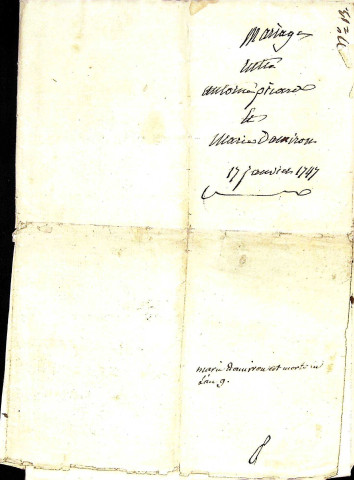 Mariage
entre
antoine picard
&
Marie Damiron
17 janvier 1747
marie damiron est morte en
l'an 9.